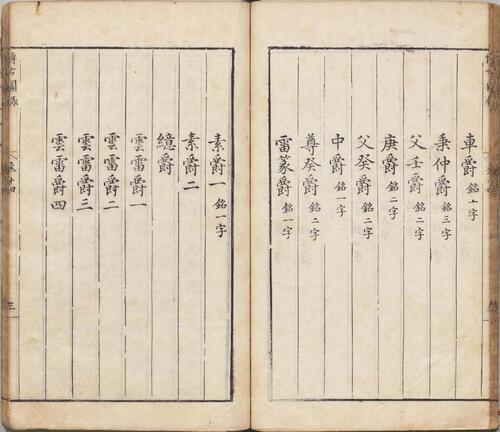 車爵銘一字
秉仲爵銘三字
父壬爵銘二字
庚爵銘二字
父癸爵銘二字
中爵銘一字
尊癸爵銘二字
雷篆爵銘一字
素爵一銘一字
素爵二
繶爵
雲雷爵一
雲雷爵二
雲雷爵三
雲雷爵四
博古圖錄
三